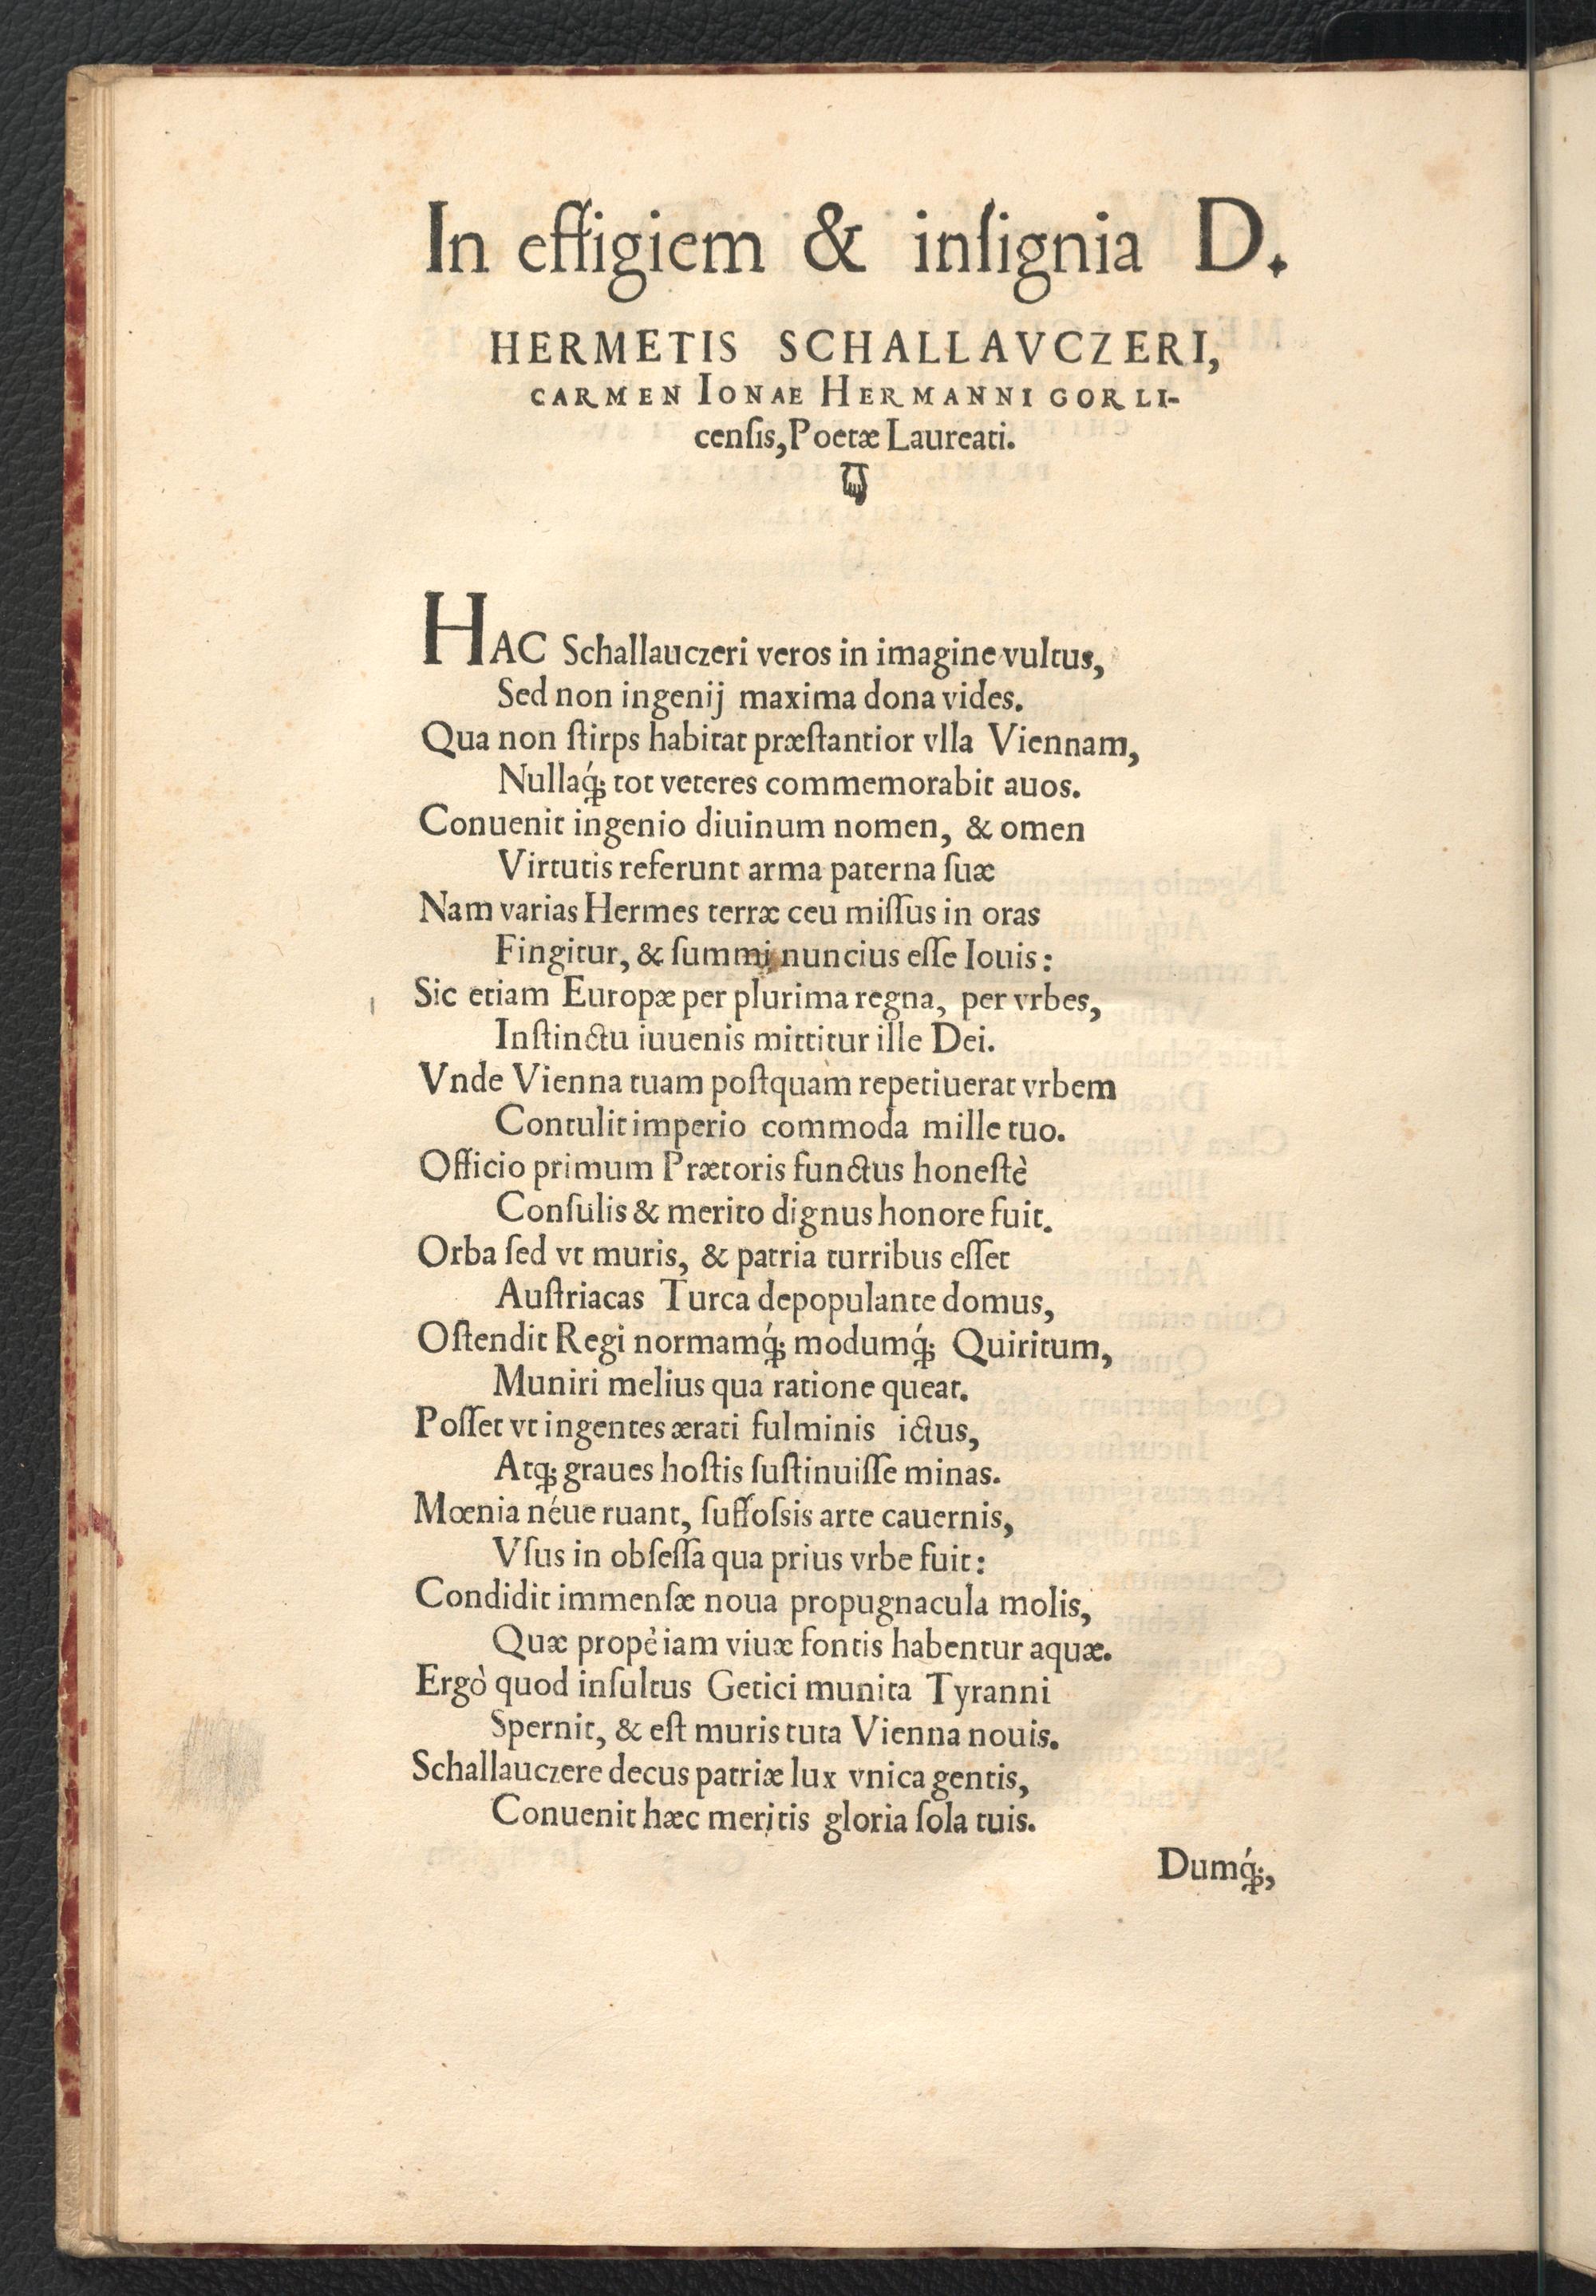 In effigiem & inſignia D.
HERMETIS SCHALLAVCZERI,
CARMEN IONAE HERMANNI GORLI-
cenſis, Poetæ Laureati.
HAC Schallauczeri veros in imagine vultus,
Sed non ingenij maxima dona vides.
Qua non ſtirps habitat præſtantior vlla Viennam,
Nullaq́; tot veteres commemorabit auos.
Conuenit ingenio diuinum nomen, & omen
Virtutis referunt arma paterna ſuæ
Nam varias Hermes terræ ceu miſſus in oras
Fingitur, & ſummi nuncius eſſe Iouis:
Sic etiam Europæ per plurima regna, per vrbes,
Inſtinctu iuuenis mittitur ille Dei.
Vnde Vienna tuam poſtquam repetiuerat vrbem
Contulit imperio commoda mille tuo.
Officio primum Prætoris functus honeſtè
Conſulis & merito dignus honore fuit.
Orba ſed vt muris, & patria turribus eſſet
Auſtriacas Turca depopulante domus,
Oſtendit Regi normamq́; modumq́; Quiritum,
Muniri melius qua ratione queat.
Poſſet vt ingentes ærati fulminis ictus,
Atq; graues hoſtis ſuſtinuiſſe minas.
Mœnia néue ruant, ſuffoſsis arte cauernis,
Vſus in obſeſſa qua prius vrbe fuit:
Condidit immenſæ noua propugnacula molis,
Quæ propè iam viuæ fontis habentur aquæ.
Ergò quod inſultus Getici munita Tyranni
Spernit, & eſt muris tuta Vienna nouis.
Schallauczere decus patriæ lux vnica gentis,
Conuenit hæc meritis gloria ſola tuis.
Dumq́;,